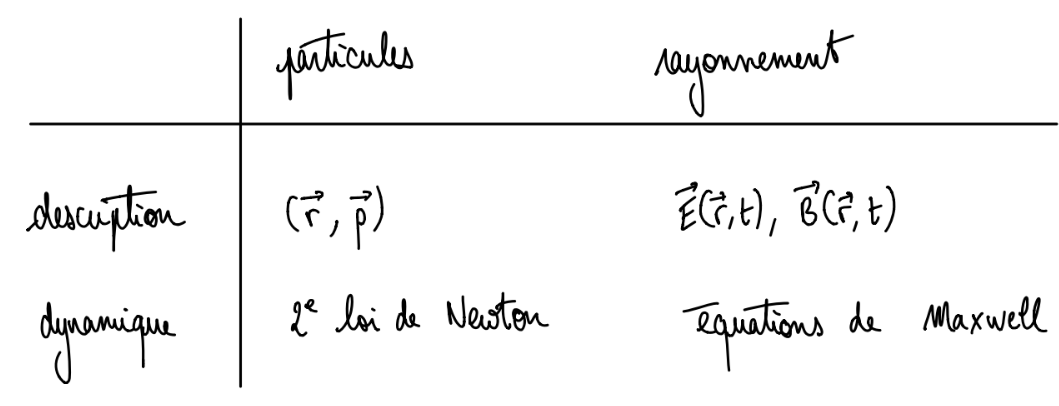 particules rayonnement
description (r⃗, p⃗) E⃗(r⃗,t), B⃗(r⃗,t)
dynamique 2e loi de Newton équations de Maxwell